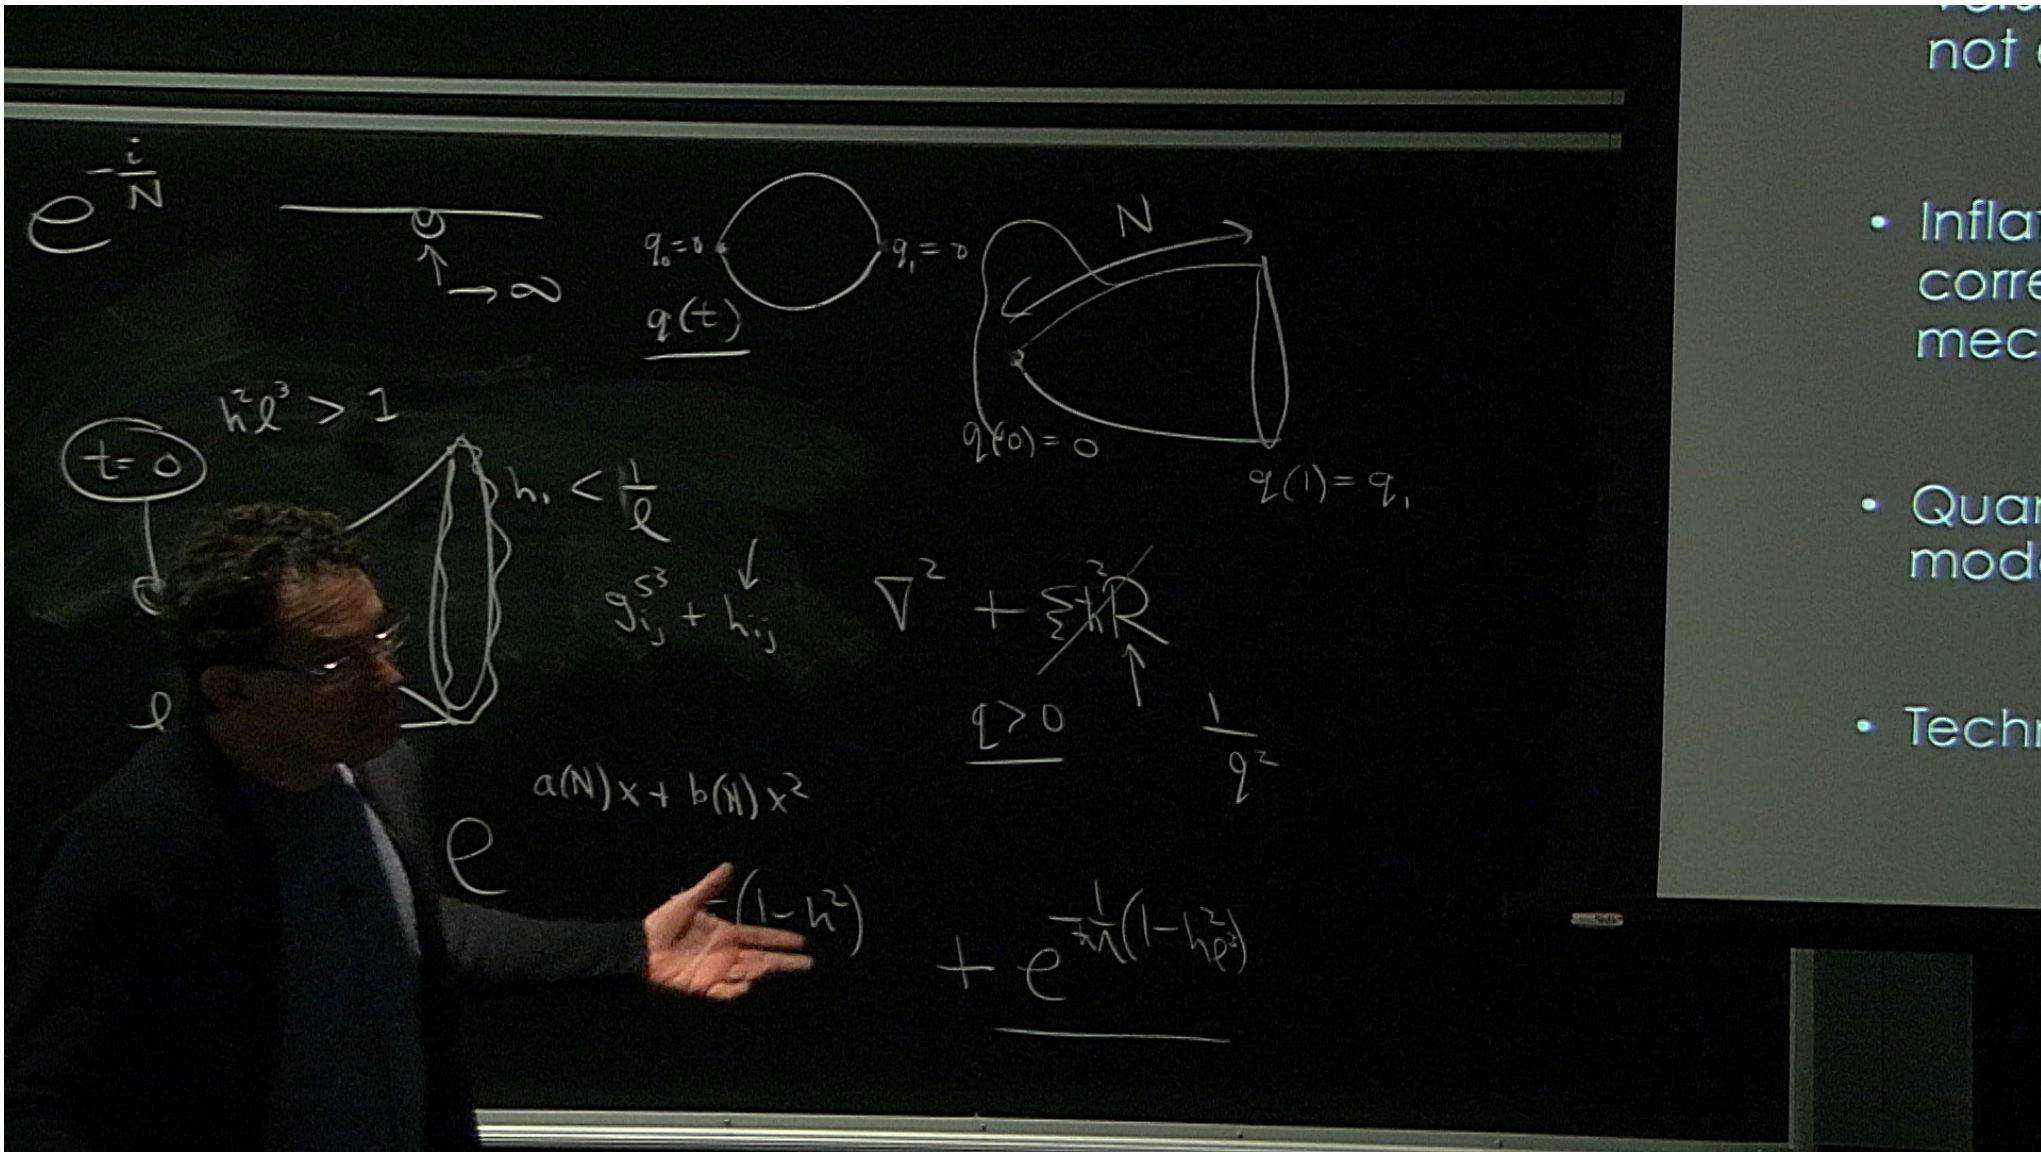 e^{-i/N}
→ ∞
q₀=0
q₁=0
q(t)
N
q(0)=0
q(1)=q₁
h²l³ > 1
t=0
h₁ < 1/l
g_{ij}^{S³} + h_{ij}
∇² + ξħ²R
l
q>0
1/q²
e^{a(N)x + b(N)x²}
(1-h²)
+ e
(1-h²l³)
not
• Infla
corre
mec
• Quan
mode
• Techn